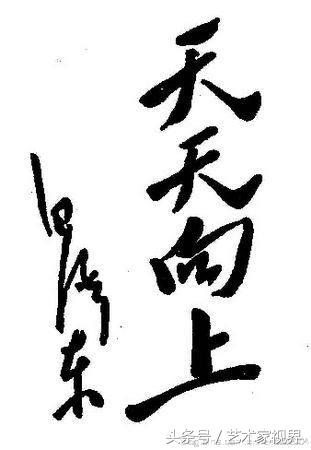 天天向上
毛泽东
头条号／艺术家视界